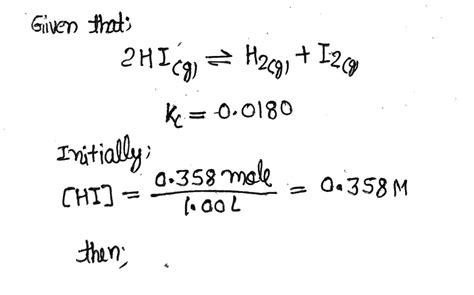 Given that;
2HI(g) ⇌ H2(g) + I2(g)
Kc = 0.0180
Initially;
[HI] = 0.358 mole / 1.00L = 0.358M
then;